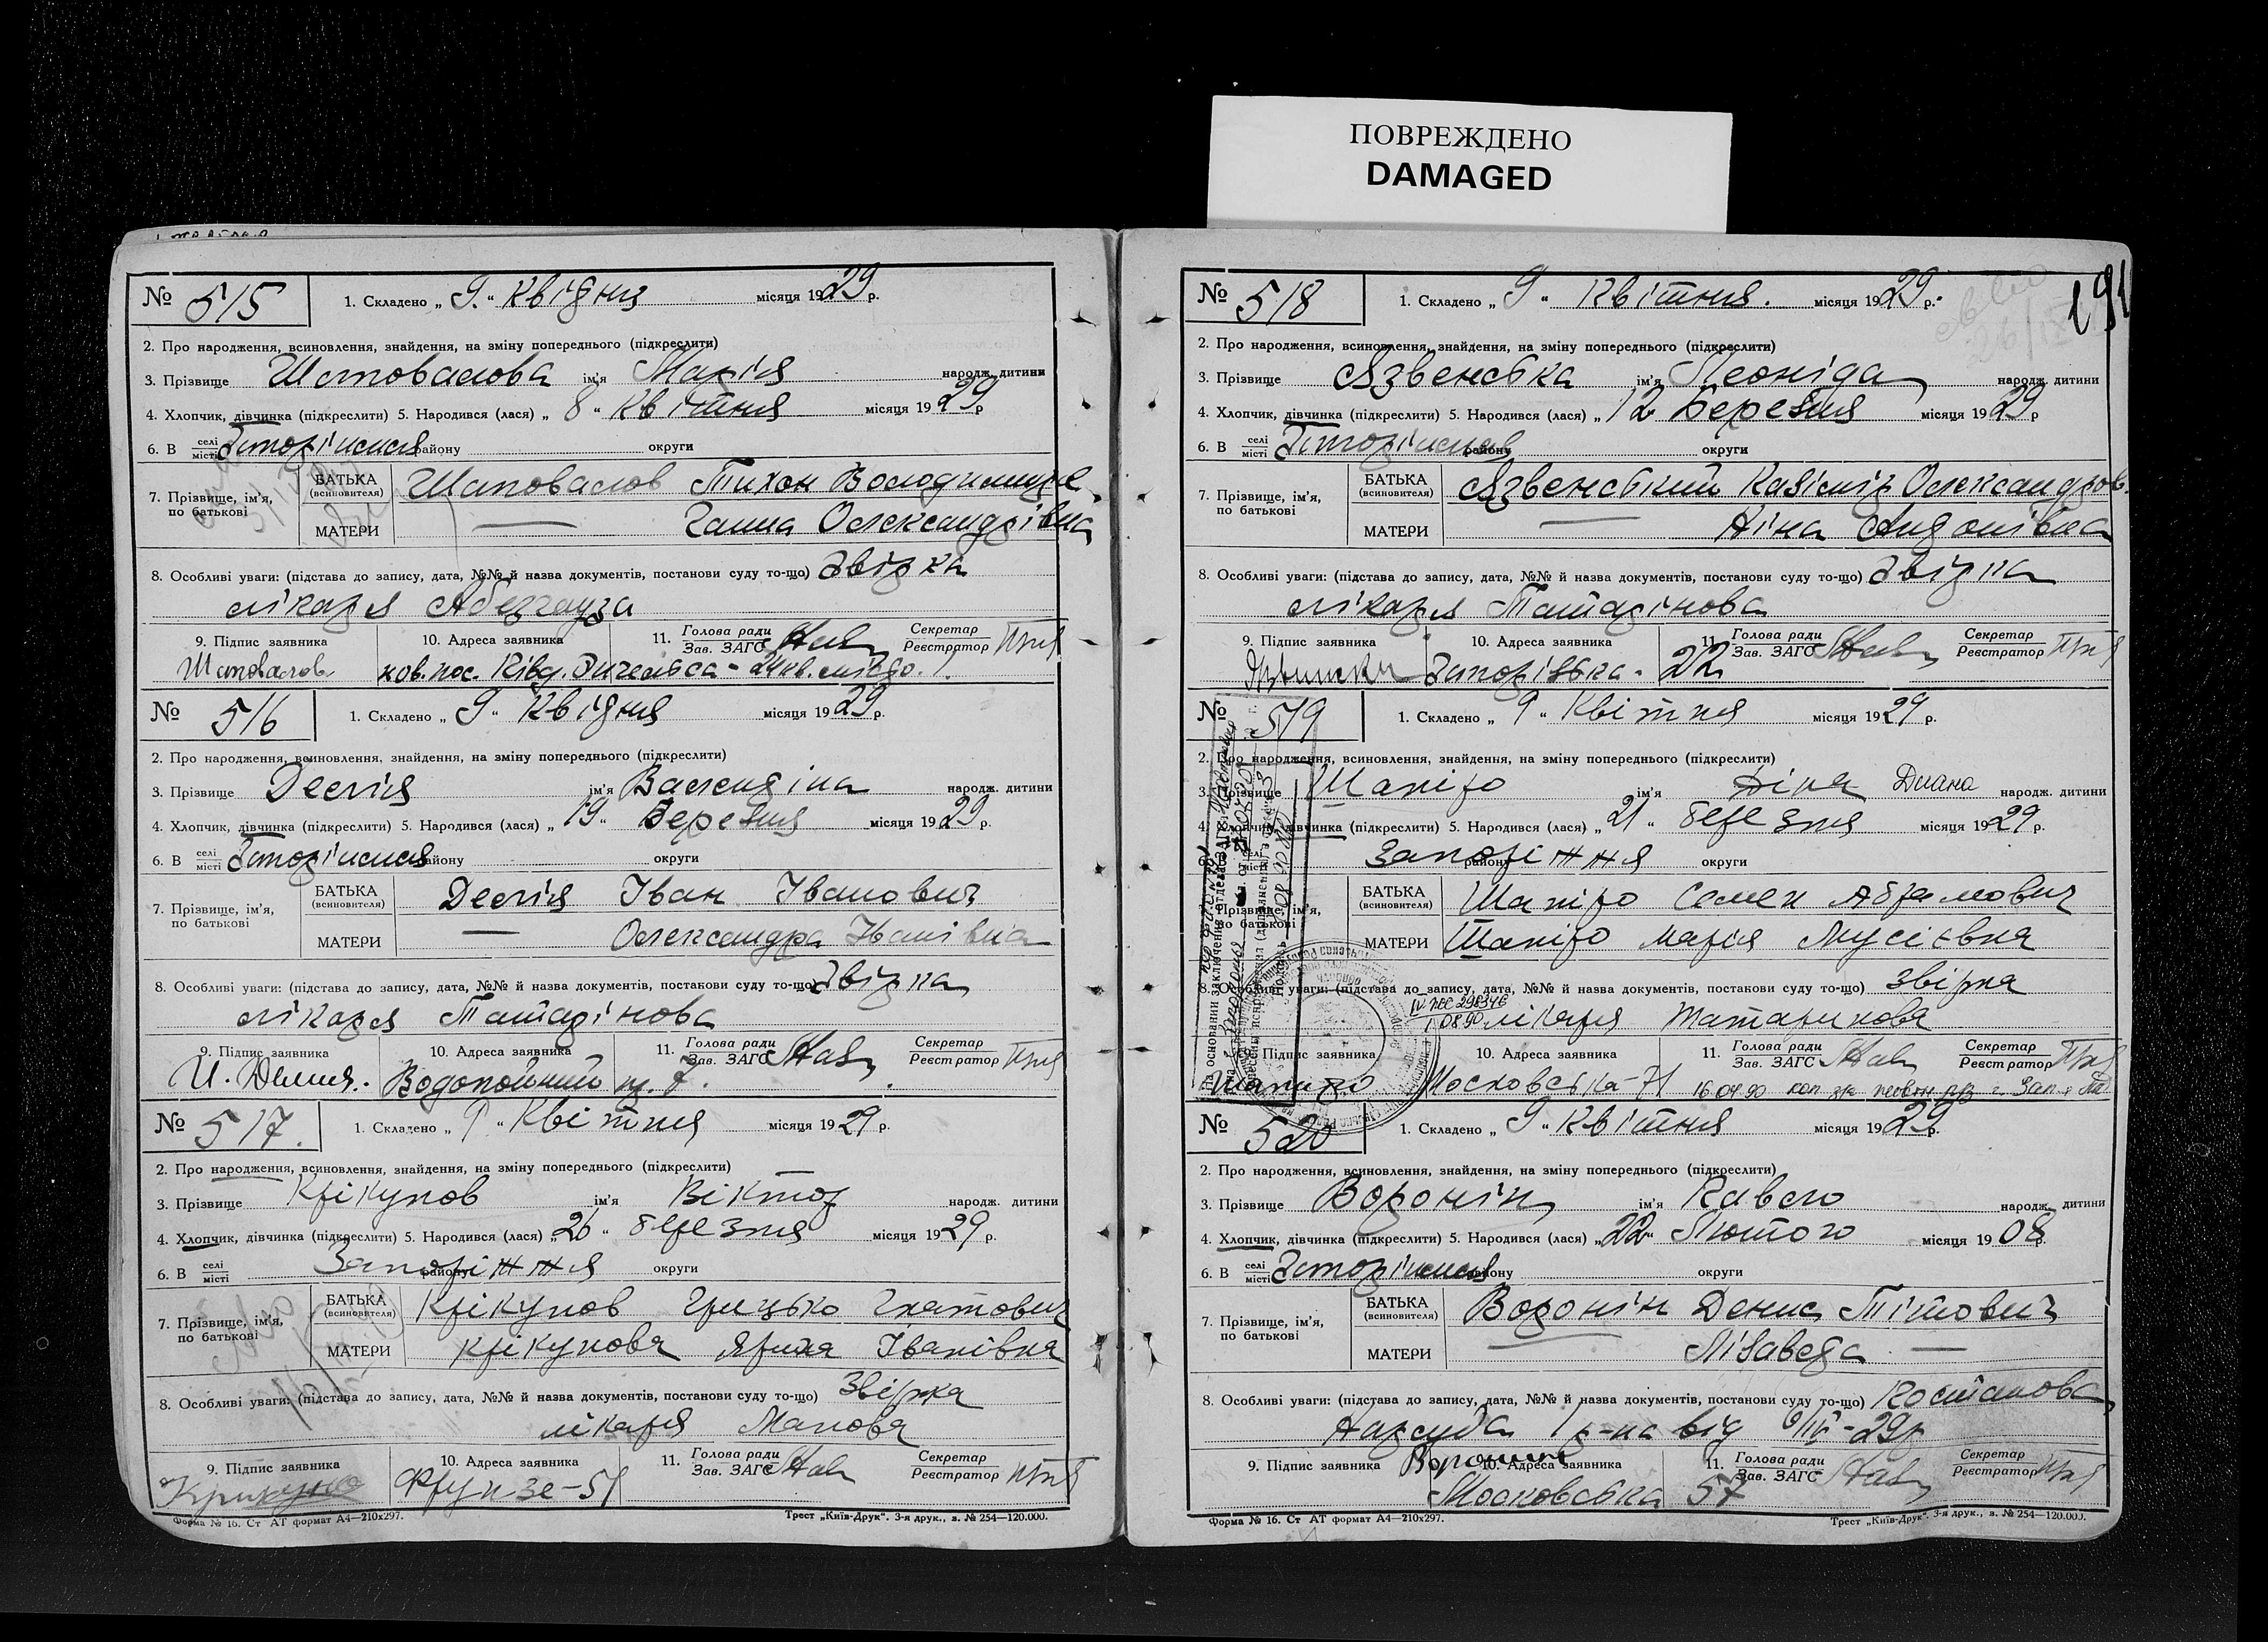 ПОВРЕЖДЕНО
DAMAGED
№ 515
1. Складено „ 9 “ Квідня місяця 1929 р.
2. Про народження, всиновлення, знайдення, на зміну попереднього (підкреслити)
3. Прізвище Шаповалова ім'я Марія народж. дитини
4. Хлопчик, дівчинка (підкреслити) 5. Народився (лася) „ 8 “ Квітня місяця 1929 р
6. В селі місті Запоріжжя району округи
7. Прізвище, ім'я, по батькові
БАТЬКА (всиновителя) Шаповалов Тихон Володимиров
МАТЕРИ — Ганна Олександрівна
8. Особливі уваги: (підстава до запису, дата, №№ й назва документів, постанови суду то-що) Звірка
лікаря Абезгауза
9. Підпис заявника 10. Адреса заявника 11. Голова ради Зав. ЗАГС Секретар Реєстратор
Шаповалов нов. пос.
№ 516
1. Складено „ 9 “ Квідня місяця 1929 р.
2. Про народження, всиновлення, знайдення, на зміну попереднього (підкреслити)
3. Прізвище Деслія ім'я Валендіна народж. дитини
4. Хлопчик, дівчинка (підкреслити) 5. Народився (лася) „ 19 “ Березня місяця 1929 р.
6. В селі місті Запоріжжя району округи
7. Прізвище, ім'я, по батькові
БАТЬКА (всиновителя) Деслія Іван Іванович
МАТЕРИ — Олександра Іванівна
8. Особливі уваги: (підстава до запису, дата, №№ й назва документів, постанови суду то-що) Звірка
лікаря Татарінова
9. Підпис заявника 10. Адреса заявника 11. Голова ради Зав. ЗАГС Секретар Реєстратор
Водопойний 7.
№ 517.
1. Складено „ 9 “ Квітня місяця 1929 р.
2. Про народження, всиновлення, знайдення, на зміну попереднього (підкреслити)
3. Прізвище Крікунов ім'я Віктор народж. дитини
4. Хлопчик, дівчинка (підкреслити) 5. Народився (лася) „ 26 “ березня місяця 1929 р.
6. В селі місті Запоріжжя району округи
7. Прізвище, ім'я, по батькові
БАТЬКА (всиновителя) Крікунов Грицько Гнатович
МАТЕРИ Крікунова Ярина Іванівна
8. Особливі уваги: (підстава до запису, дата, №№ й назва документів, постанови суду то-що) Звірка
лікаря Манова
9. Підпис заявника 10. Адреса заявника 11. Голова ради Зав. ЗАГС Секретар Реєстратор
Фрунзе-51
Форма № 16. Ст АТ формат А4—210х297. Трест „Київ-Друк“. 3-я друк., з. № 254—120.000.
191
№ 518
1. Складено „ 9 “ Квітня місяця 1929 р.
2. Про народження, всиновлення, знайдення, на зміну попереднього (підкреслити)
3. Прізвище Язвенська ім'я Леоніда народж. дитини
4. Хлопчик, дівчинка (підкреслити) 5. Народився (лася) „ 12 Березня місяця 1929 р
6. В селі місті Запоріжжя району округи
7. Прізвище, ім'я, по батькові
БАТЬКА (всиновителя) Язвенський Казімір Олександров.
МАТЕРИ — Ніна Андонівна
8. Особливі уваги: (підстава до запису, дата, №№ й назва документів, постанови суду то-що) Звірка
лікаря Татарінова
9. Підпис заявника 10. Адреса заявника 11. Голова ради Зав. ЗАГС Секретар Реєстратор
Запорізька - 22
№ 519
1. Складено „ 9 “ Квітня місяця 1929 р.
2. Про народження, всиновлення, знайдення, на зміну попереднього (підкреслити)
3. Прізвище Шапіро ім'я Діна Диана народж. дитини
4. Хлопчик, дівчинка (підкреслити) 5. Народився (лася) „ 21 “ березня місяця 1929 р.
Запоріжжя району округи
7. Прізвище, ім'я, по батькові
БАТЬКА (всиновителя) Шапіро Семен Абрамович
МАТЕРИ Шапіро Марія Мусієвна
8. Особливі уваги: (підстава до запису, дата, №№ й назва документів, постанови суду то-що) звірка
лікаря Татаринова
9. Підпис заявника 10. Адреса заявника 11. Голова ради Зав. ЗАГС Секретар Реєстратор
Шапиро Московська-71
№ 520
1. Складено „ 9 “ Квітня місяця 1929 р.
2. Про народження, всиновлення, знайдення, на зміну попереднього (підкреслити)
3. Прізвище Воронін ім'я Павло народж. дитини
4. Хлопчик, дівчинка (підкреслити) 5. Народився (лася) „ 22 “ Лютого місяця 1908 р.
6. В селі місті Запоріжжя району округи
7. Прізвище, ім'я, по батькові
БАТЬКА (всиновителя) Воронін Денис Тітович
МАТЕРИ — Лізаведа —
8. Особливі уваги: (підстава до запису, дата, №№ й назва документів, постанови суду то-що) Постанова
Нарсуда 1 р-на від 6/IV-29р
9. Підпис заявника Воронин 10. Адреса заявника 11. Голова ради Зав. ЗАГС Секретар Реєстратор
Московська 57
Форма № 16. Ст АТ формат А4—210х297. Трест „Київ-Друк“. 3-я друк., з. № 254—120.000.